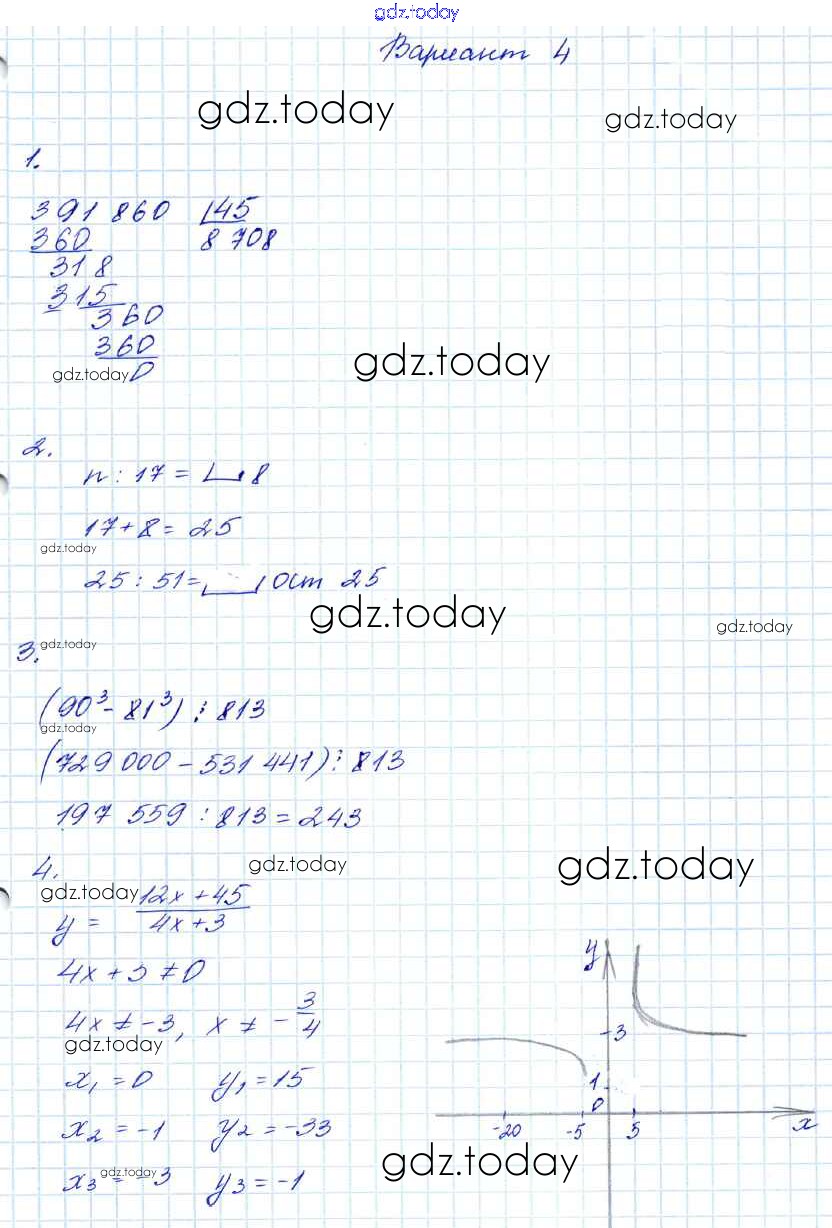 gdz.today
Вариант 4
gdz.today
gdz.today
1.
391 860 45
360 8 708
318
315
360
360
gdz.today 0
gdz.today
2.
n : 17 = 8
17+8 = 25
gdz.today
25 : 51 = ост 25
gdz.today
gdz.today
3. gdz.today
(90³ - 81³) ⋮ 813
gdz.today
(729 000 - 531 441) ⋮ 813
197 559 : 813 = 243
4.
gdz.today
gdz.today
gdz.today
y = (12x + 45)/(4x + 3)
4x + 3 ≠ 0
4x ≠ -3, x ≠ -3/4
gdz.today
x₁ = 0 y₁ = 15
x₂ = -1 y₂ = -33
x₃ = -3 y₃ = -1
gdz.today
gdz.today
y
3
1
0
-20 -5 5 x